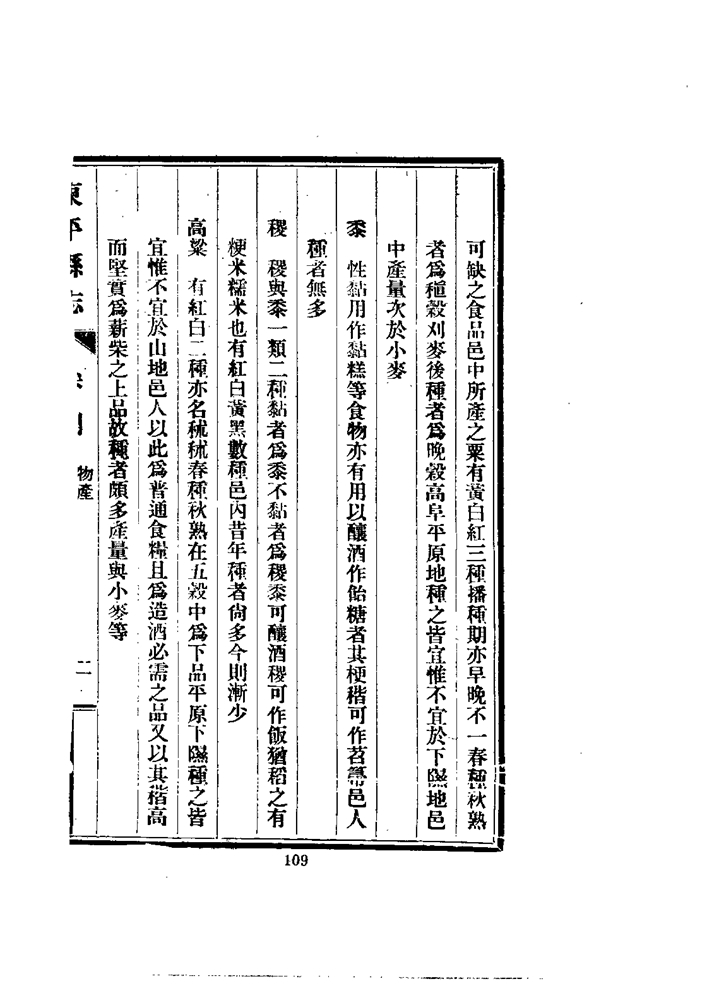 可缺之食品邑中所產之粟有黃白紅三種播種期亦早晚不一春種秋熟
者爲稙穀刈麥後種者爲晚穀高阜平原地種之皆宜惟不宜於下隰地邑
中產量次於小麥
黍　性黏用作黏糕等食物亦有用以釀酒作飴糖者其梗稭可作苕箒邑人
種者無多
稷　稷與黍一類二種黏者爲黍不黏者爲稷黍可釀酒稷可作飯猶稻之有
粳米糯米也有紅白黃黑數種邑內昔年種者尙多今則漸少
高粱　有紅白二種亦名秫秫春種秋熟在五穀中爲下品平原下隰種之皆
宜惟不宜於山地邑人以此爲普通食糧且爲造酒必需之品又以其稭高
而堅實爲薪柴之上品故種者頗多產量與小麥等
東平縣志
物產
二
109